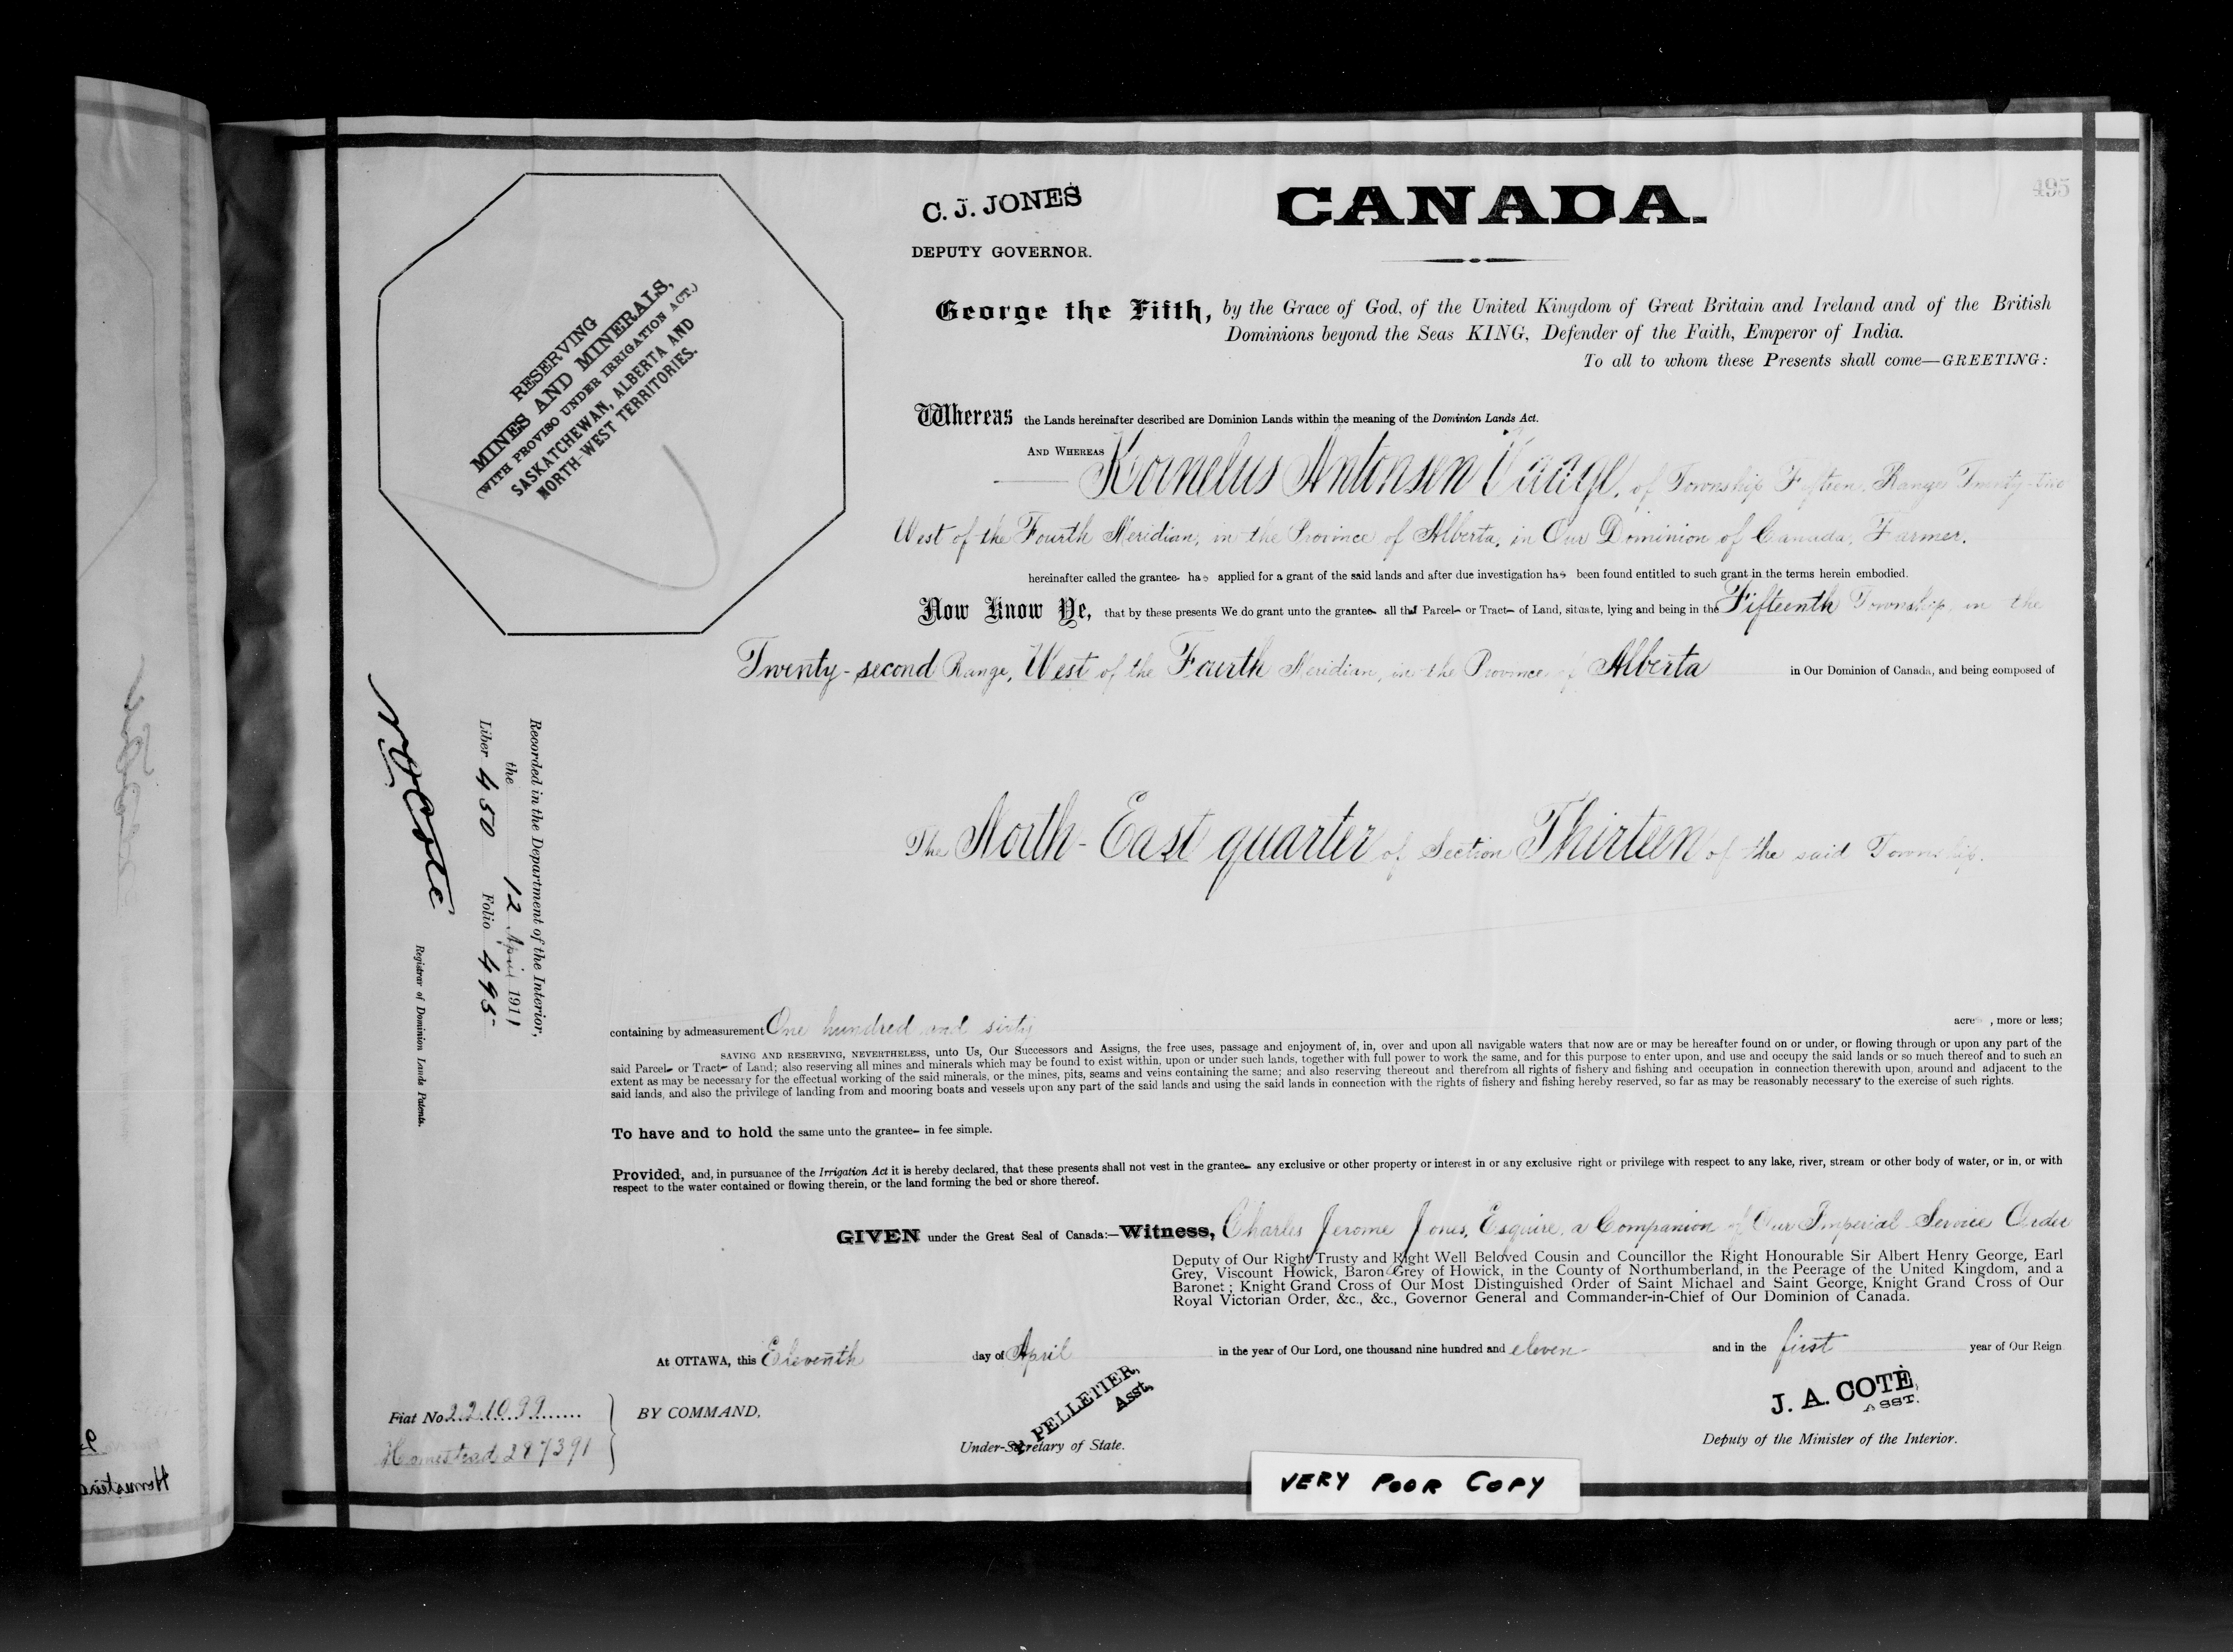 495
C. J. JONES
DEPUTY GOVERNOR.
CANADA.
RESERVING
MINES AND MINERALS,
(WITH PROVISO UNDER IRRIGATION ACT.)
SASKATCHEWAN, ALBERTA AND
NORTH-WEST TERRITORIES.
George the Fifth, by the Grace of God, of the United Kingdom of Great Britain and Ireland and of the British
Dominions beyond the Seas KING, Defender of the Faith, Emperor of India.
To all to whom these Presents shall come—GREETING:
Whereas the Lands hereinafter described are Dominion Lands within the meaning of the Dominion Lands Act.
AND WHEREAS Kornelus Antonsen Vaage, of Township Fifteen, Range Twenty-two
West of the Fourth Meridian, in the Province of Alberta, in Our Dominion of Canada, Farmer,
hereinafter called the grantee has applied for a grant of the said lands and after due investigation has been found entitled to such grant in the terms herein embodied.
Now Know Ye, that by these presents We do grant unto the grantee all that Parcel or Tract of Land, situate, lying and being in the Fifteenth Township, in the
Twenty-second Range, West of the Fourth Meridian, in the Province of Alberta in Our Dominion of Canada, and being composed of
The North-East quarter of Section Thirteen of the said Township.
Recorded in the Department of the Interior,
the 12 April 1911
Liber 450 Folio 495
N O Cote
Registrar of Dominion Lands Patents.
containing by admeasurement One hundred and sixty acres, more or less;
SAVING AND RESERVING, NEVERTHELESS, unto Us, Our Successors and Assigns, the free uses, passage and enjoyment of, in, over and upon all navigable waters that now are or may be hereafter found on or under, or flowing through or upon any part of the
said Parcel or Tract of Land; also reserving all mines and minerals which may be found to exist within, upon or under such lands, together with full power to work the same, and for this purpose to enter upon, and use and occupy the said lands or so much thereof and to such an
extent as may be necessary for the effectual working of the said minerals, or the mines, pits, seams and veins containing the same; and also reserving thereout and therefrom all rights of fishery and fishing and occupation in connection therewith upon, around and adjacent to the
said lands, and also the privilege of landing from and mooring boats and vessels upon any part of the said lands and using the said lands in connection with the rights of fishery and fishing hereby reserved, so far as may be reasonably necessary to the exercise of such rights.
To have and to hold the same unto the grantee in fee simple.
Provided, and, in pursuance of the Irrigation Act it is hereby declared, that these presents shall not vest in the grantee any exclusive or other property or interest in or any exclusive right or privilege with respect to any lake, river, stream or other body of water, or in, or with
respect to the water contained or flowing therein, or the land forming the bed or shore thereof.
GIVEN under the Great Seal of Canada:—Witness, Charles Jerome Jones, Esquire, a Companion of Our Imperial Service Order
Deputy of Our Right Trusty and Right Well Beloved Cousin and Councillor the Right Honourable Sir Albert Henry George, Earl
Grey, Viscount Howick, Baron Grey of Howick, in the County of Northumberland, in the Peerage of the United Kingdom, and a
Baronet; Knight Grand Cross of Our Most Distinguished Order of Saint Michael and Saint George, Knight Grand Cross of Our
Royal Victorian Order, &c., &c., Governor General and Commander-in-Chief of Our Dominion of Canada.
At OTTAWA, this Eleventh day of April in the year of Our Lord, one thousand nine hundred and eleven and in the first year of Our Reign
Fiat No 221099
Homestead 287391
BY COMMAND,
PELLETIER,
Asst.
Under-Secretary of State.
J. A. COTÉ,
ASST.
Deputy of the Minister of the Interior.
VERY POOR COPY